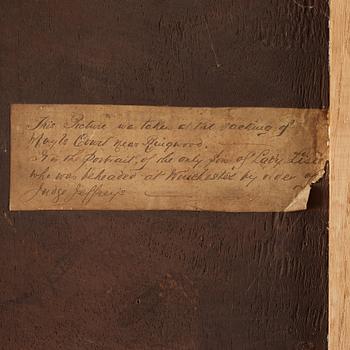 This Picture was taken at the sacking of
Moyls Court near Ringwood.
It is the portrait, of the only son of Lady Lisle
who was beheaded at Winchester by order of
Judge Jeffreys